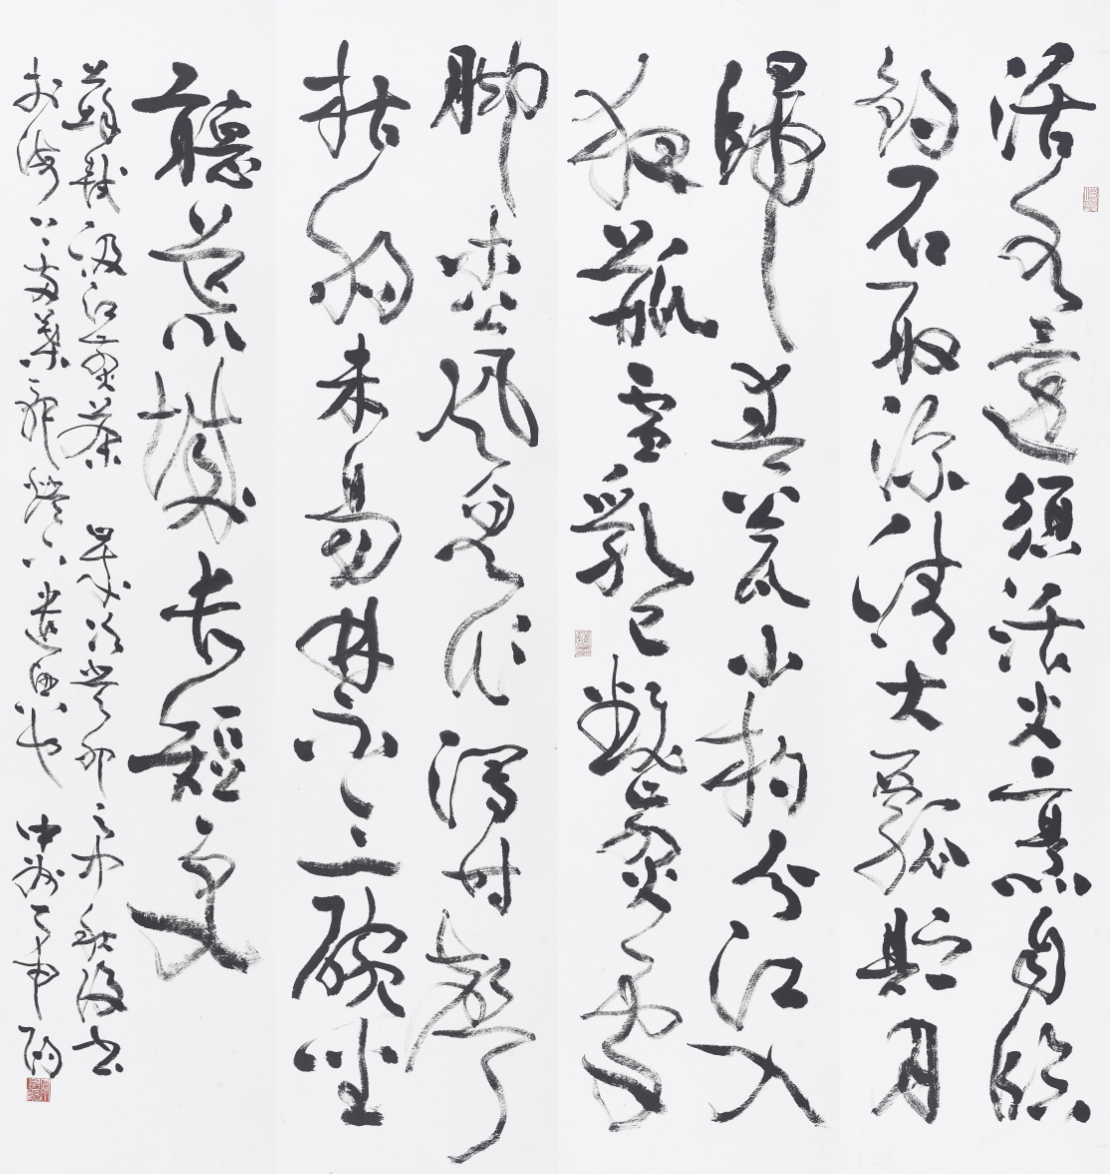 活水還須活火烹自臨
釣石取深清大瓢貯月
歸春瓮小杓分江入
夜瓶雪乳已翻煎處
脚松風忽作瀉時聲
枯腸未易禁三碗坐
聽荒城長短更
蘇軾汲江煎茶 歲次癸卯之 秋 書
於海上 也 中州